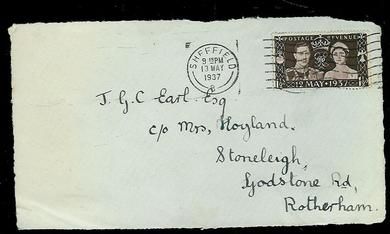 SHEFFIELD
9 15PM
13 MAY
1937
POSTAGE REVENUE
12 MAY 1937
J. G. C Earl. Esq.
c/o Mrs, Hoyland.
Stoneleigh,
Godstone Rd,
Rotherham.